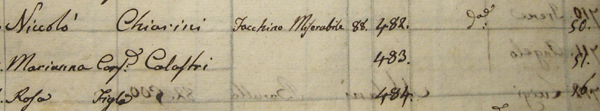 Niccolò Chiarini Facchino Miserabile 88. 482. 50.
Marianna Cons.e Calastri 483. 51.
Rosa Figla 484. 26.